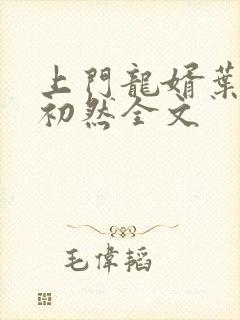 上門龍婿葉
初然全文
毛偉韜